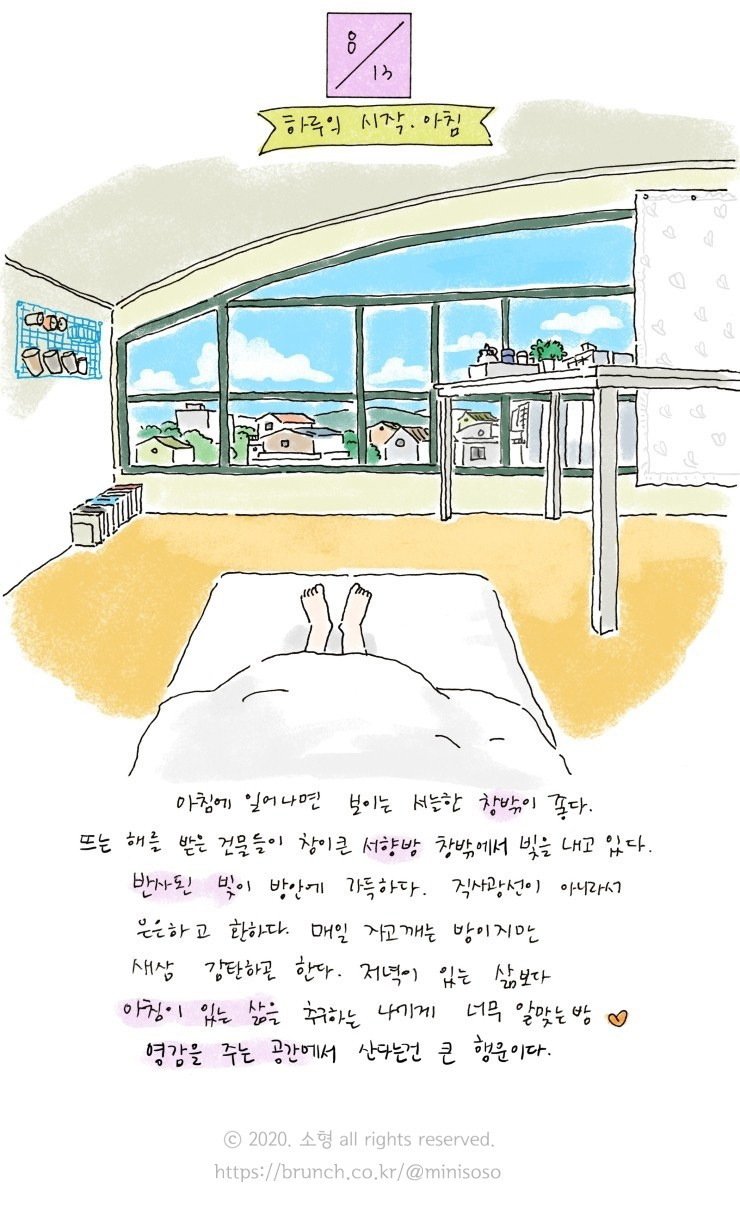 8/13
하루의 시작. 아침
아침에 일어나면 보이는 서늘한 창밖이 좋다.
뜨는 해를 받은 건물들이 창이큰 서향방 창밖에서 빛을 내고 있다.
반사된 빛이 방안에 가득하다. 직사광선이 아니라서
은은하고 환하다. 매일 자고깨는 방이지만
새삼 감탄하곤 한다. 저녁이 있는 삶보다
아침이 있는 삶을 추구하는 나에게 너무 알맞는방
영감을 주는 공간에서 산다는건 큰 행운이다.
© 2020. 소형 all rights reserved.
https://brunch.co.kr/@minisoso